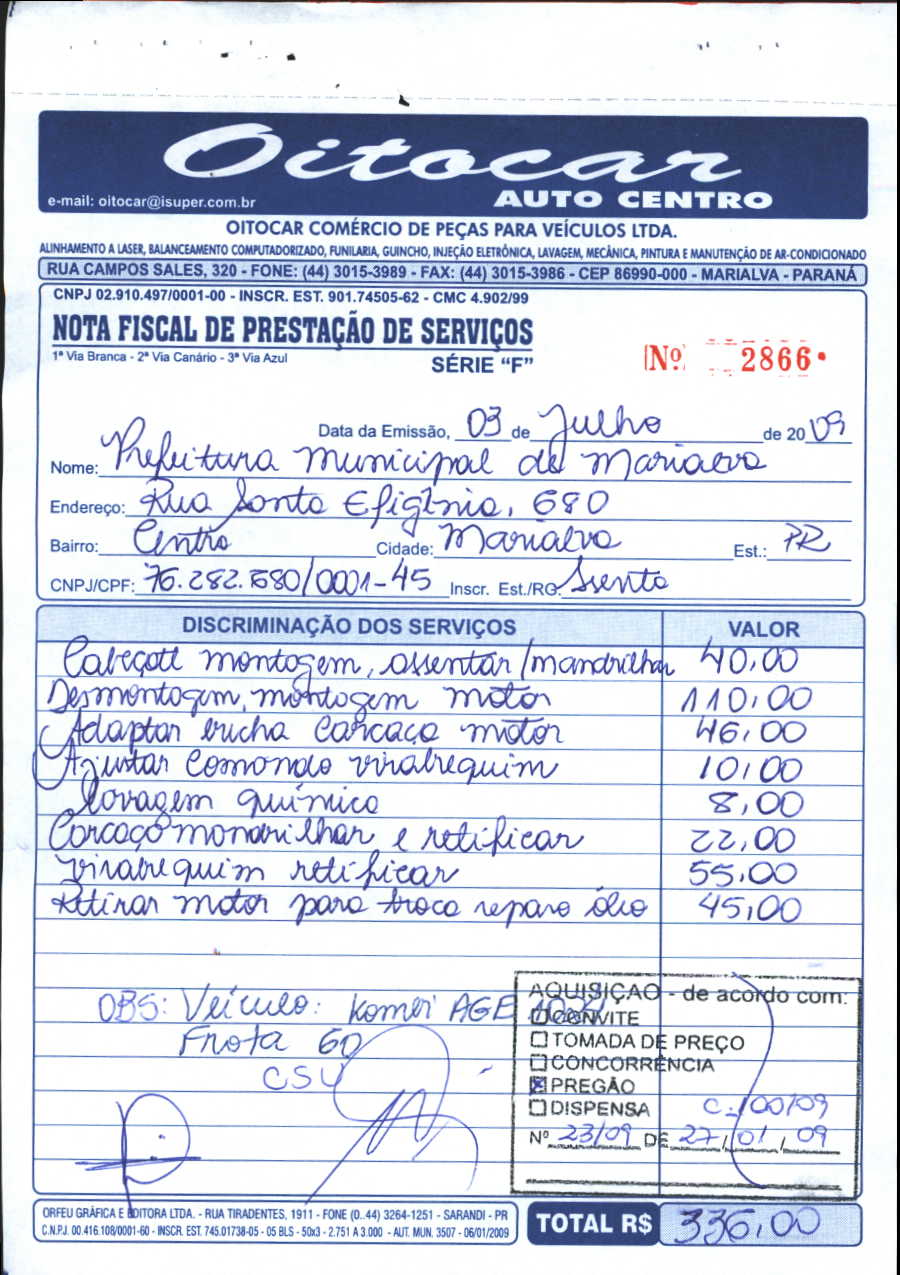 Oitocar
AUTO CENTRO
e-mail: oitocar@isuper.com.br
OITOCAR COMÉRCIO DE PEÇAS PARA VEÍCULOS LTDA.
ALINHAMENTO A LASER, BALANCEAMENTO COMPUTADORIZADO, FUNILARIA, GUINCHO, INJEÇÃO ELETRÔNICA, LAVAGEM, MECÂNICA, PINTURA E MANUTENÇÃO DE AR-CONDICIONADO
RUA CAMPOS SALES, 320 - FONE: (44) 3015-3989 - FAX: (44) 3015-3986 - CEP 86990-000 - MARIALVA - PARANÁ
CNPJ 02.910.497/0001-00 - INSCR. EST. 901.74505-62 - CMC 4.902/99
NOTA FISCAL DE PRESTAÇÃO DE SERVIÇOS
1ª Via Branca - 2ª Via Canário - 3ª Via Azul SÉRIE “F” Nº 2866
Data da Emissão, 03 de Julho de 2009
Nome: Prefeitura Municipal de Marialva
Endereço: Rua Santa Efigênia, 680
Bairro: Centro Cidade: Marialva Est.: PR
CNPJ/CPF: 76.282.680/0001-45 Inscr. Est./RG: Isento
DISCRIMINAÇÃO DOS SERVIÇOS VALOR
Cabeçote montagem, assentar/mandrilhar 40,00
Desmontagem, montagem motor 110,00
Adaptar bucha Carcaça motor 46,00
Ajustar Comando virabrequim 10,00
Lavagem química 8,00
Carcaça mandrilhar e retificar 22,00
Virabrequim retificar 55,00
Retirar motor para troca reparo óleo 45,00
OBS: Veículo: Kombi AGE
Frota 60
CSU
AQUISIÇAO - de acordo com:
CONVITE
TOMADA DE PREÇO
CONCORRÊNCIA
PREGÃO
DISPENSA C.100/09
Nº 23/09 DE 27/01/09
ORFEU GRÁFICA E EDITORA LTDA. - RUA TIRADENTES, 1911 - FONE (0..44) 3264-1251 - SARANDI - PR
C.N.P.J. 00.416.108/0001-60 - INSCR. EST. 745.01738-05 - 05 BLS - 50x3 - 2.751 A 3.000 - AUT. MUN. 3507 - 06/01/2009
TOTAL R$ 336,00